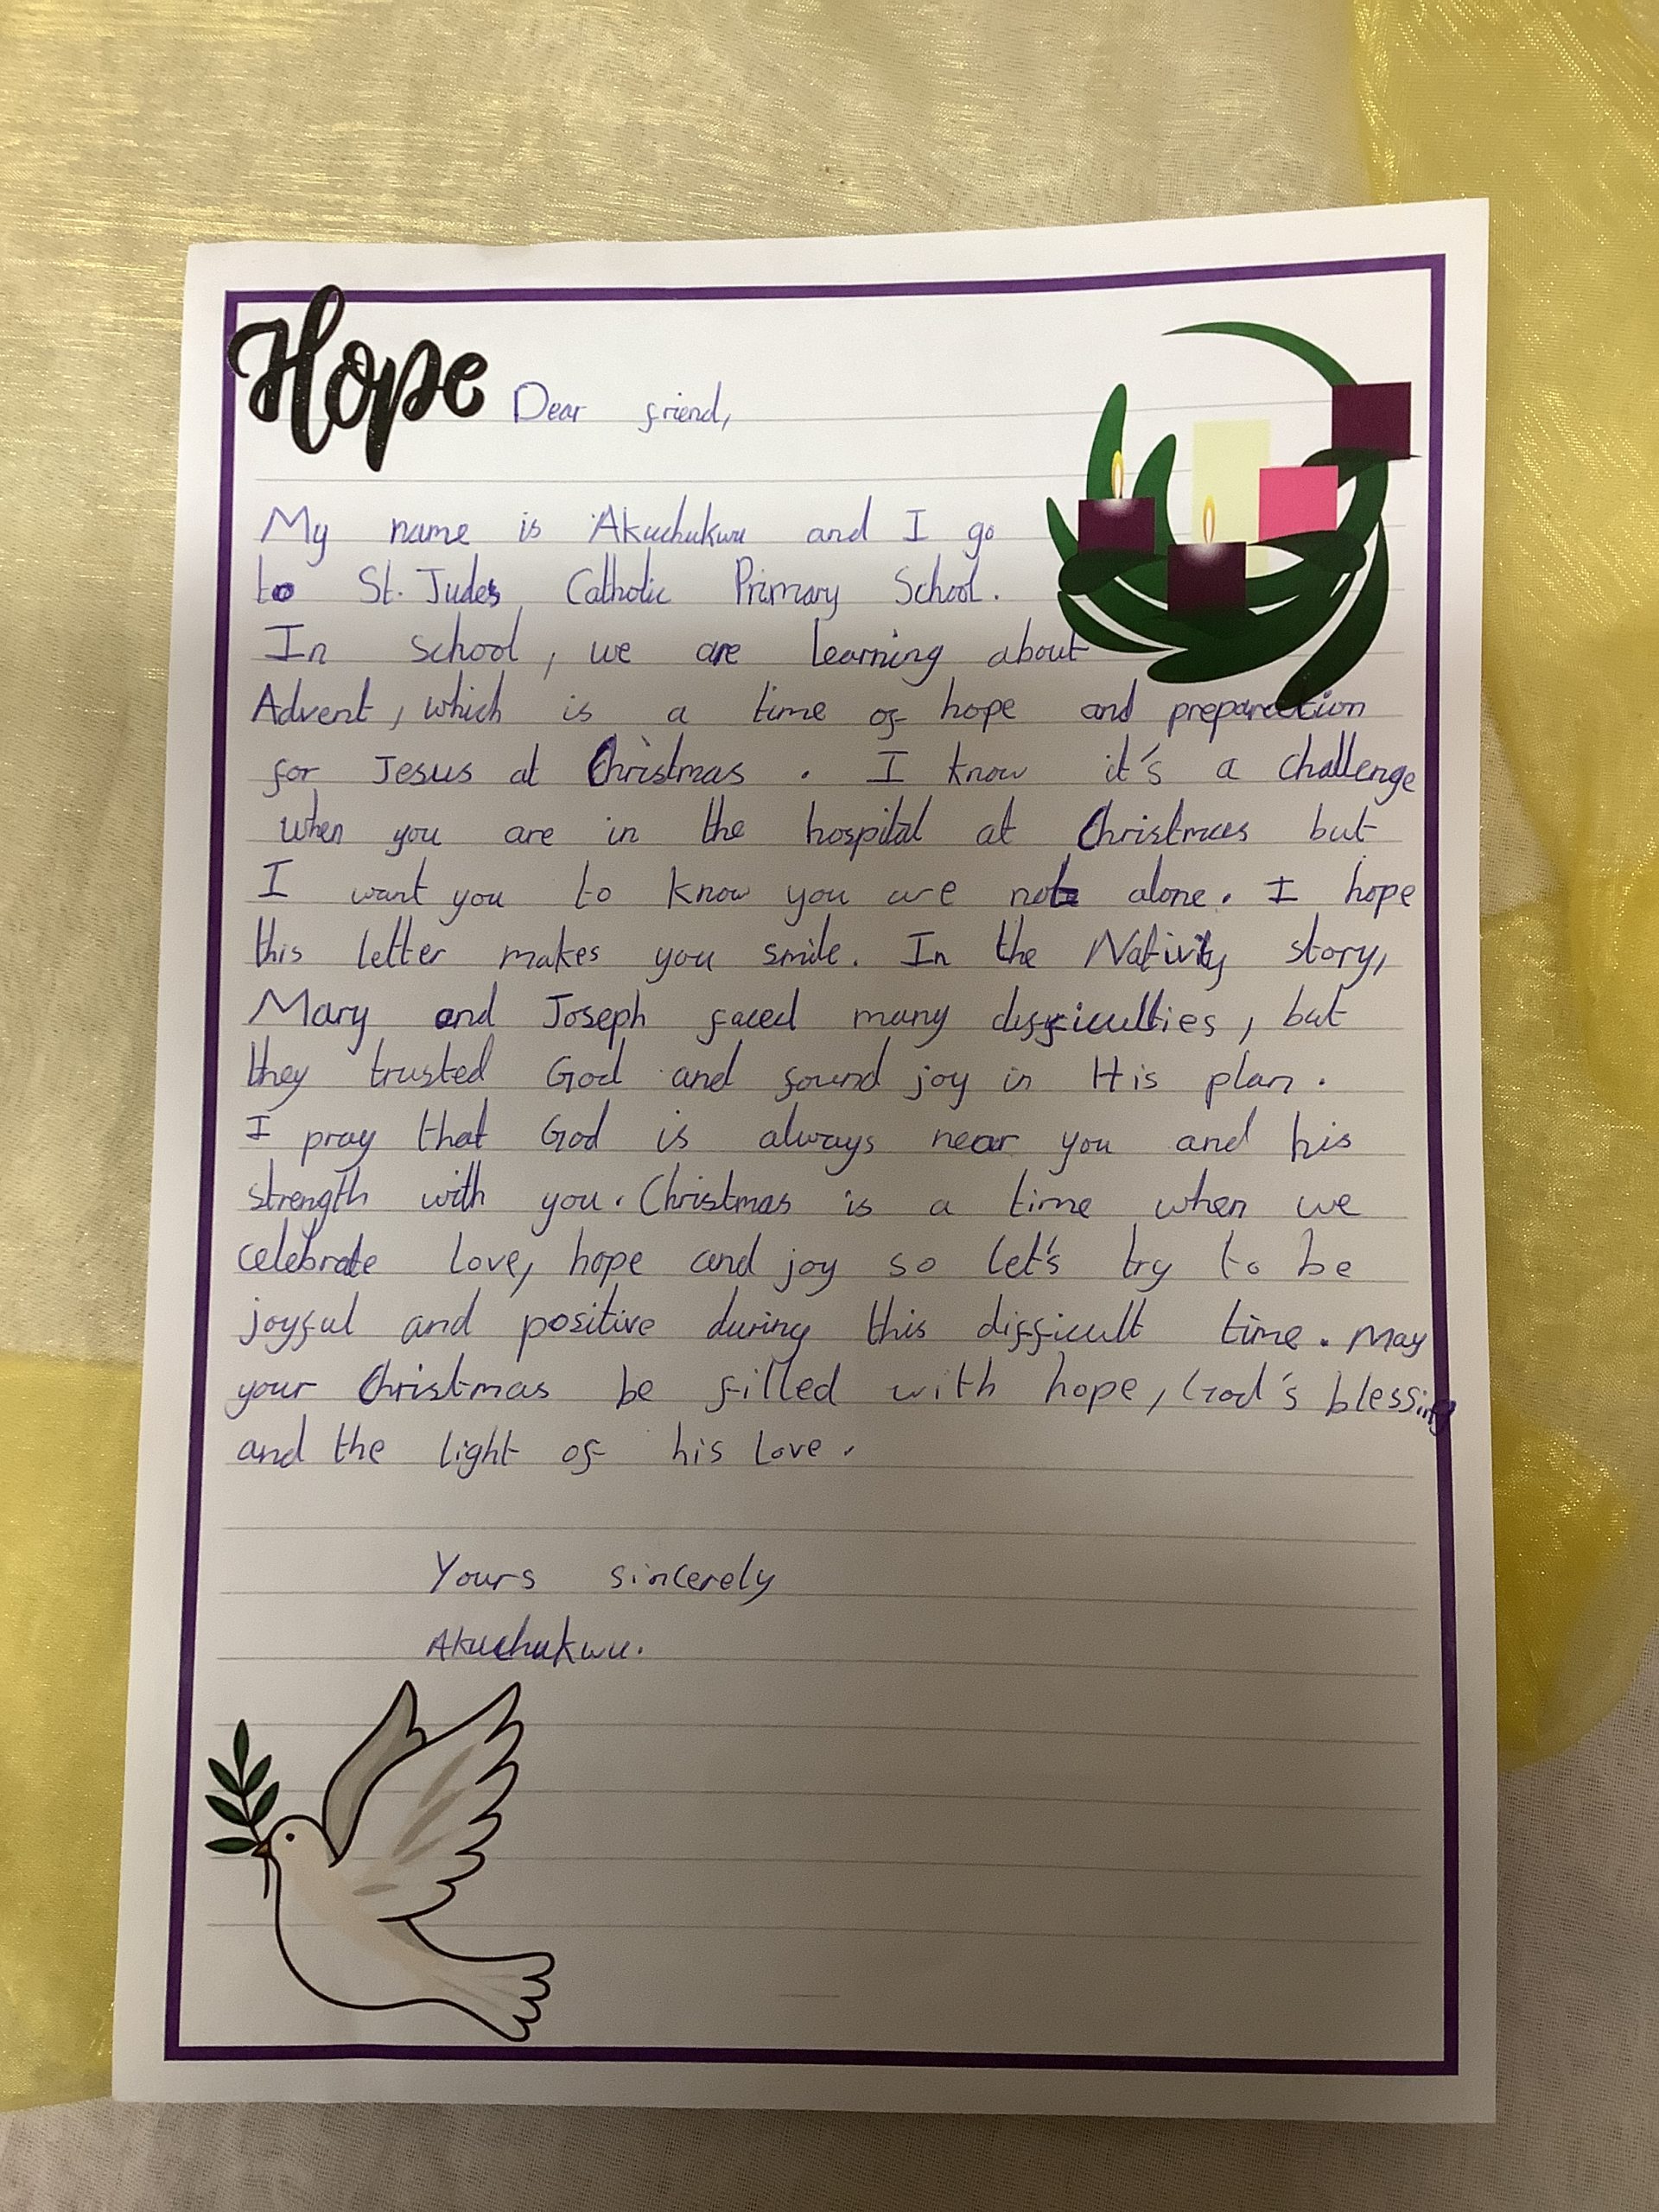 Hope
Dear friend,
My name is Akuchukwu and I go
to St. Judes Catholic Primary School.
In school, we are learning about
Advent, which is a time of hope and preparation
for Jesus at Christmas. I know it's a challenge
when you are in the hospital at Christmas but
I want you to know you are not alone. I hope
this letter makes you smile. In the Nativity story,
Mary and Joseph faced many difficulties, but
they trusted God and found joy in His plan.
I pray that God is always near you and his
strength with you. Christmas is a time when we
celebrate love, hope and joy so let's try to be
joyful and positive during this difficult time. May
your Christmas be filled with hope, God's blessing
and the light of his love.
Yours sincerely
Akuchukwu.